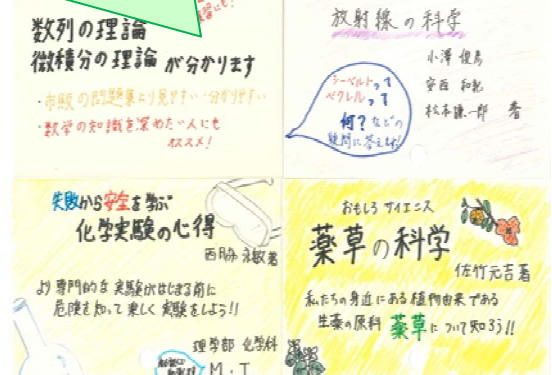 数列の理論
微積分の理論 が分かります
・市販の問題集より見やすい・分かりやすい
・数学の知識を深めたい人にも
オススメ!
放射線の科学
小澤 俊彦
安西 和紀
松本謙一郎 著
シーベルトって
ベクレルって
何?などの
疑問に答えます!
失敗から安全を学ぶ
化学実験の心得
西脇 永敏著
より専門的な実験がはじまる前に
危険を知って楽しく実験をしよう!!
理学部 化学科
M.T
おもしろサイエンス
薬草の科学
佐竹元吉著
私たちの身近にある植物由来である
生薬の原料 薬草について知ろう!!